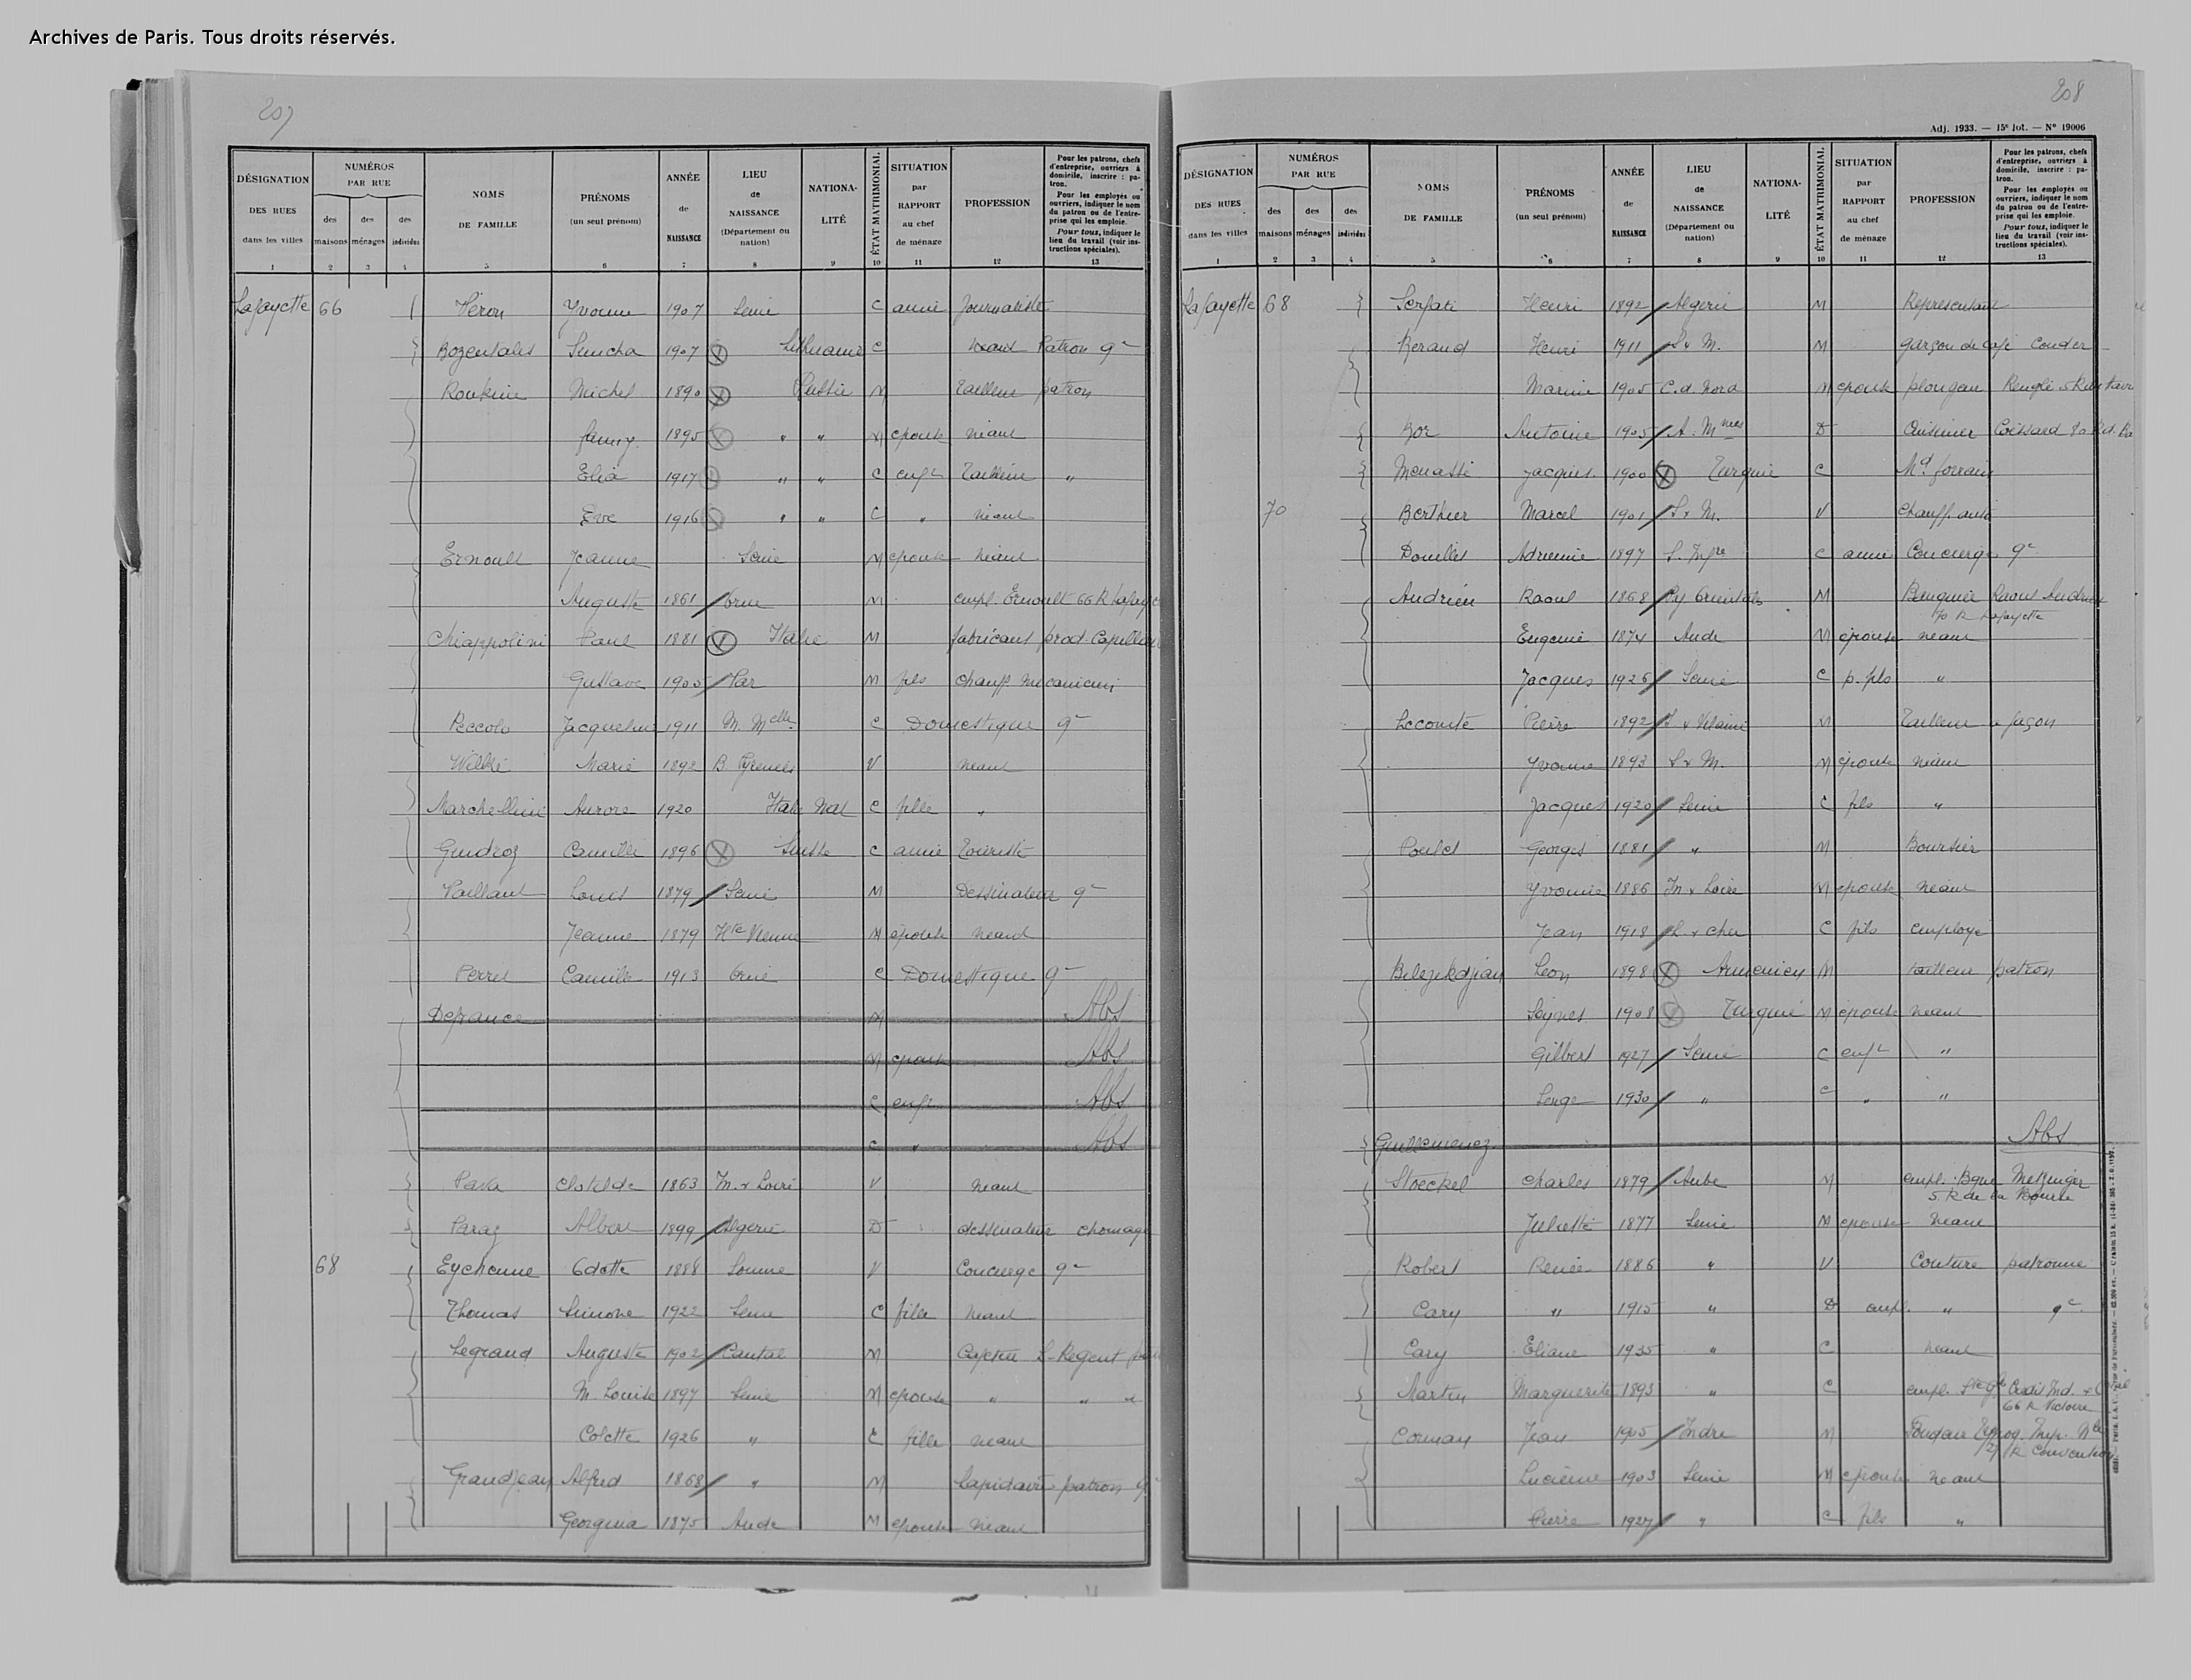 Archives de Paris. Tous droits réservés.
207
DÉSIGNATION DES RUES dans les villes 1
NUMÉROS PAR RUE
des maisons 2
des ménages 3
des individus 4
NOMS DE FAMILLE 5
PRÉNOMS (un seul prénom) 6
ANNÉE de NAISSANCE 7
LIEU de NAISSANCE (Département ou nation) 8
NATIONALITÉ 9
ÉTAT MATRIMONIAL 10
SITUATION par RAPPORT au chef de ménage 11
PROFESSION 12
Pour les patrons, chefs d'entreprise, ouvriers à domicile, inscrire : patron.
Pour les employés ou ouvriers, indiquer le nom du patron ou de l'entreprise qui les emploie.
Pour tous, indiquer le lieu du travail (voir instructions spéciales). 13
Lafayette 66 Héron Yvonne 1907 Seine C amie Journaliste
Bozentalis Simcha 1907 Lithuanie C Patron
Roukine Michel 1890 Russie M tailleur patron
Fanny 1895 " " M épouse néant
Elia 1917 " " C enft Tailleur "
Eve 1916 " " C " néant
Ernoult Jeanne Seine M épouse néant
Auguste 1861 Orne M empl. Ernoult 66 R Lafayet
Chiappolini Paul 1881 Italie M fabricant prod. Capillair
Gustave 1905 Var M fils chauff. mécanicien
Peccolo Jacqueline 1911 M. Melle C Domestique
Marie 1892 B Pyrénées V néant
Marchellini Aurore 1920 Italie Nat C fille "
Gudroz Camille 1896 Suisse C amie Touriste
Vaillant Louis 1879 Seine M Dessinateur
Jeanne 1879 Hte Vienne M épouse néant
Perrel Camille 1913 Orne C Domestique
Defrance M Abs
M épouse Abs
C enft Abs
C " Abs
Pava Clotilde 1863 In. & Loire V néant
Paraz Albert 1899 Algérie D dessinateur chomage
68 Eychenne Odette 1888 Somme V Concierge
Thomas Simone 1922 Seine C fille néant
Legrand Auguste 1902 Cantal M Cafetier L. Regent
M. Louise 1897 Seine M épouse " " "
Colette 1926 " C fille néant
Grandjean Alfred 1868 " M Lapidaire patron
Georgina 1875 Aude M épouse néant
208
Adj. 1933. — 15e lot. — N° 19006
DÉSIGNATION DES RUES dans les villes 1
NUMÉROS PAR RUE
des maisons 2
des ménages 3
des individus 4
NOMS DE FAMILLE 5
PRÉNOMS (un seul prénom) 6
ANNÉE de NAISSANCE 7
LIEU de NAISSANCE (Département ou nation) 8
NATIONALITÉ 9
ÉTAT MATRIMONIAL 10
SITUATION par RAPPORT au chef de ménage 11
PROFESSION 12
Pour les patrons, chefs d'entreprise, ouvriers à domicile, inscrire : patron.
Pour les employés ou ouvriers, indiquer le nom du patron ou de l'entreprise qui les emploie.
Pour tous, indiquer le lieu du travail (voir instructions spéciales). 13
Lafayette 68 Serfati Henri 1892 Algérie M Représentant
Beraud Henri 1911 S & M. M garçon de café Couder
Marine 1905 C. d. Nord M épouse
Antoine 1905 A. Mmes D Cuisinier Coissard
Menassi Jacques 1900 Turquie C Md forain
70 Berthier Marcel 1901 S & M. V Chauff. auto
Adrienne 1897 S. Infre C amie Concierge
Audrieu Raoul 1868 Py Orientales M Banquier Raoul Audrieu
70 R Lafayette
Eugenie 1874 Aude M épouse néant
Jacques 1926 Seine C p. fils "
Lecomte Pierre 1892 I & Vilaine M Tailleur a façon
Yvonne 1893 S & M. M épouse néant
Jacques 1920 Seine C fils "
Georges 1881 " M Boursier
Yvonne 1886 In & Loire M épouse néant
Jean 1918 L. & Cher C fils employé
Bilezikdjian Léon 1898 Arménien M tailleur patron
1908 Turquie M épouse néant
Gilbert 1927 Seine C enft "
Serge 1930 " C " "
Guillemenez Abs
Stoeckel Charles 1879 Aube M empl. Bque Metzinger
5 R de la Bourse
Juliette 1877 Seine M épouse néant
Robert Renée 1886 " V Couture patronne
Cary " 1915 " D " "
Cary Eliane 1935 " C néant
Martin Marguerite 1893 " C empl. Sté Gle Crédit Ind. &
66 R Victoire
Cornay Jean 1905 Indre M Imp. Nle
27 R Convention
Lucienne 1903 Seine M épouse néant
Pierre 1927 " C fils "